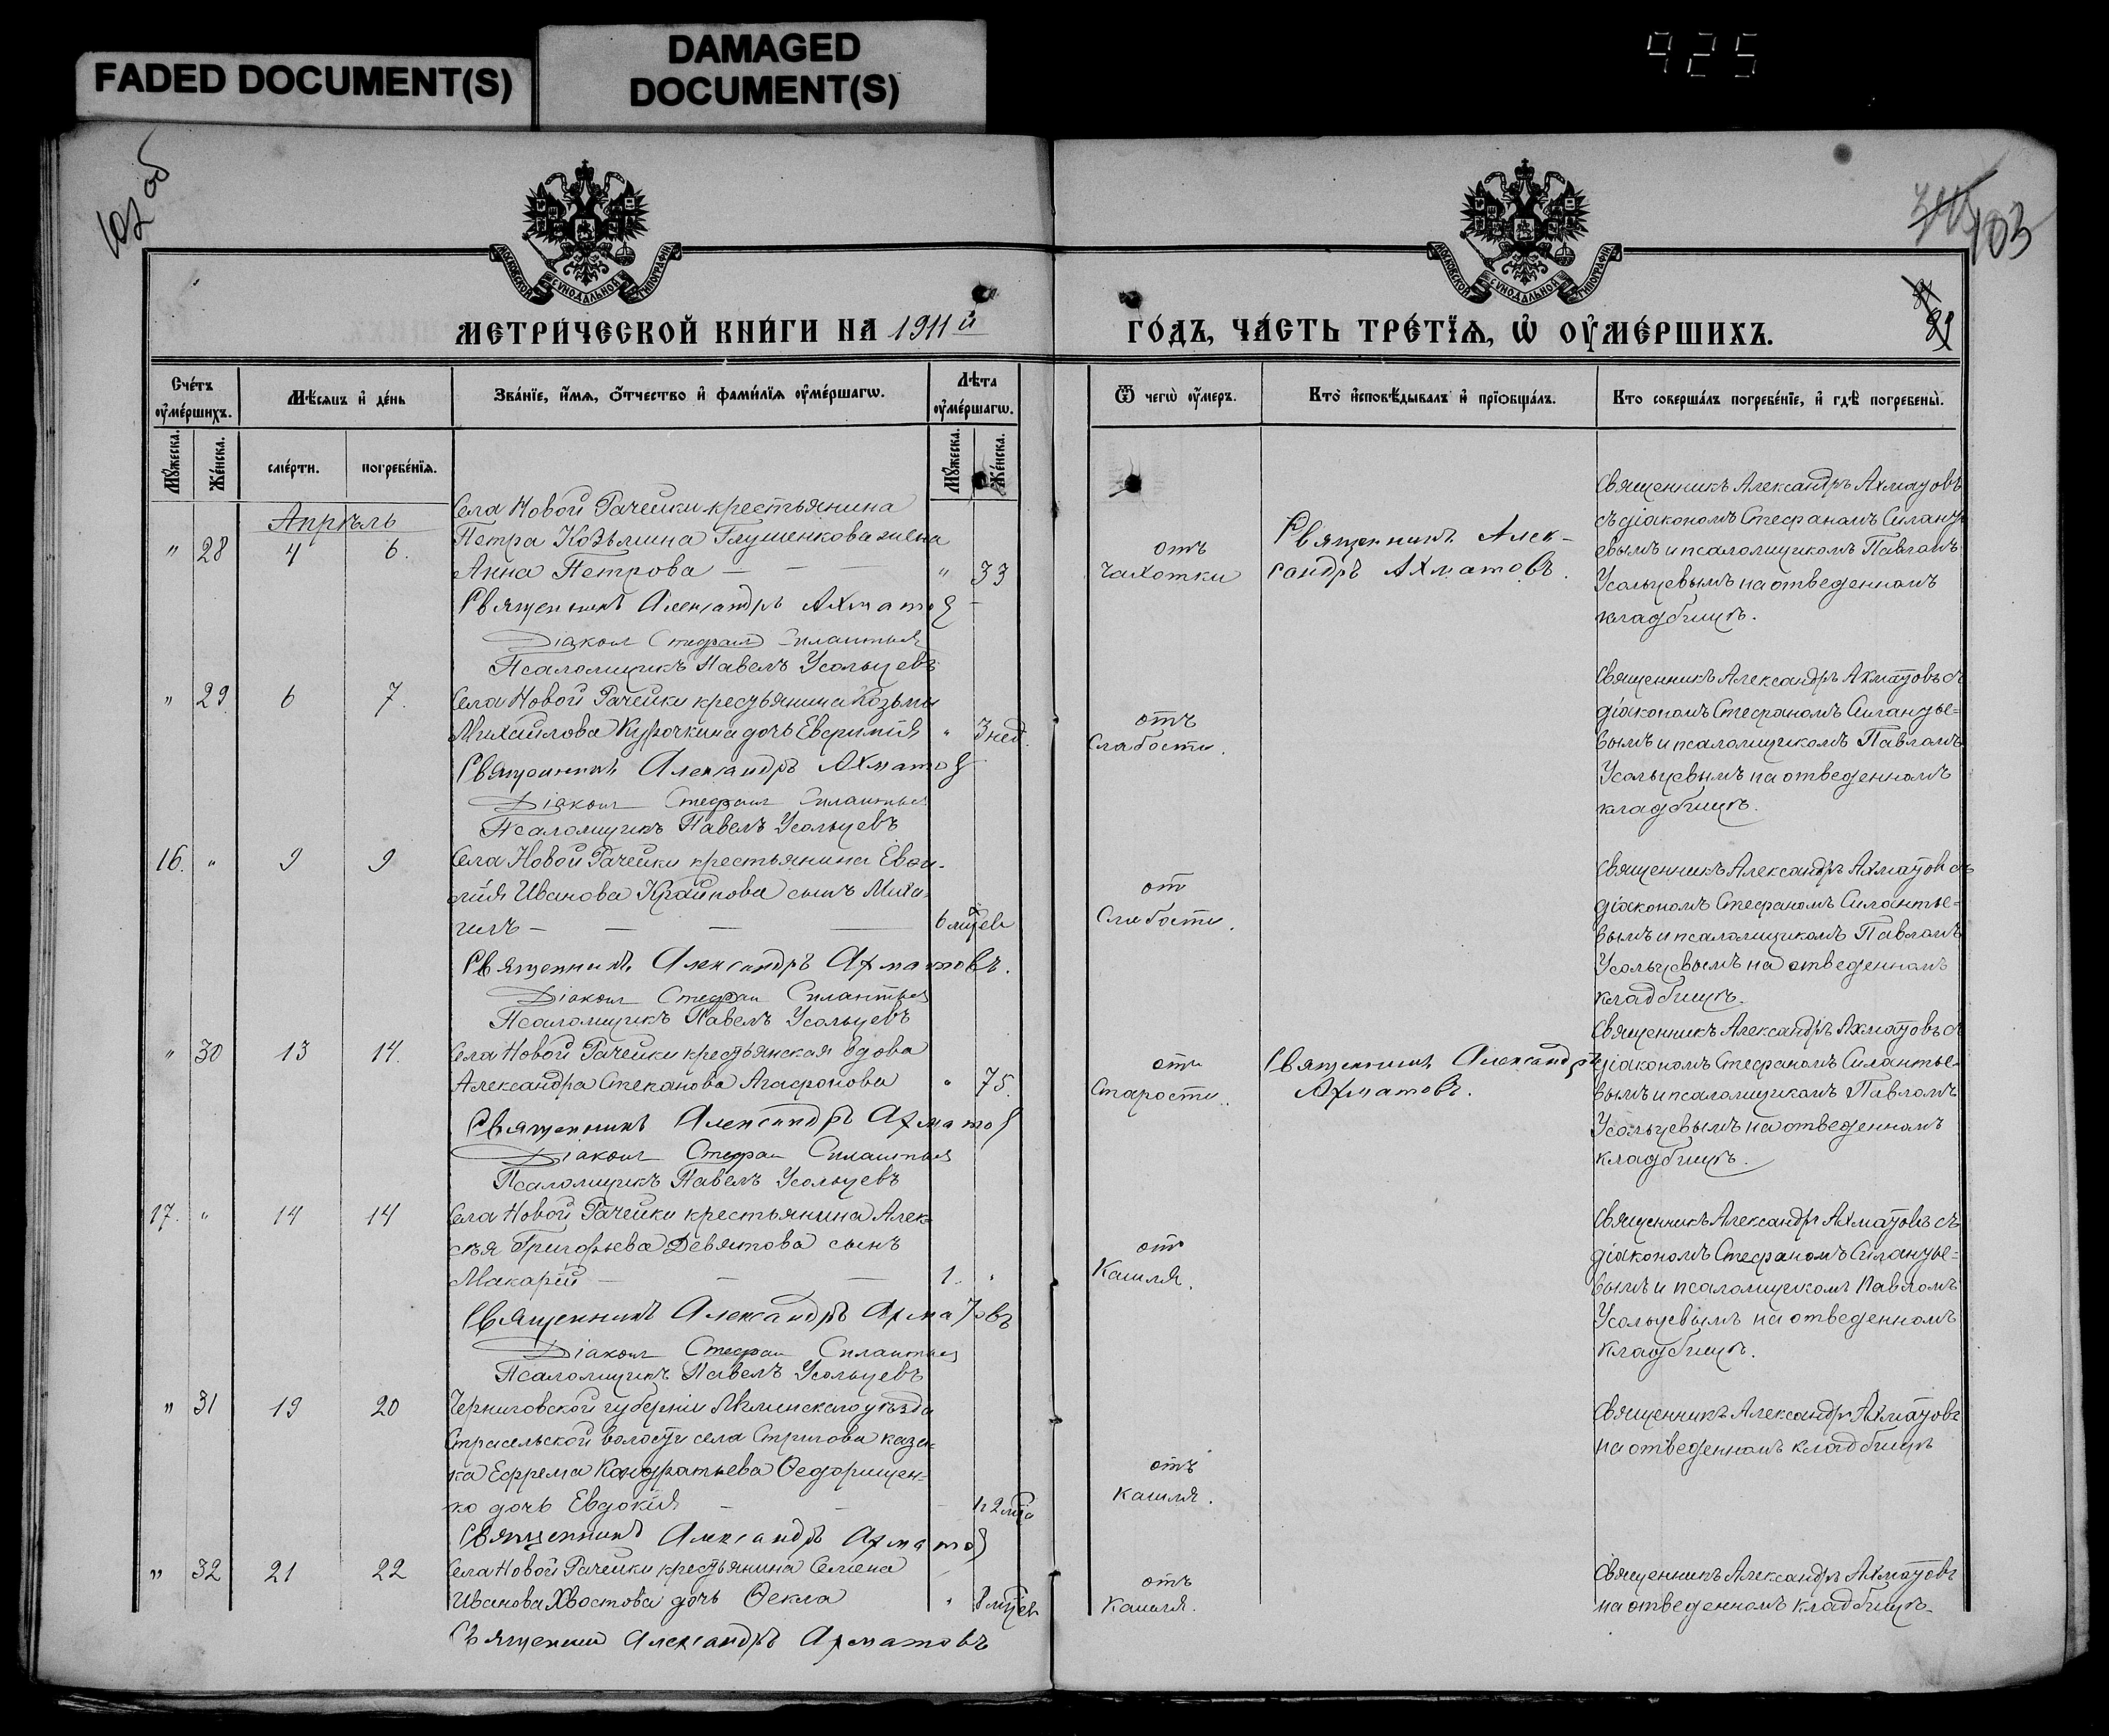 FADED DOCUMENT(S)
DAMAGED
DOCUMENT(S)
925
102 об
103
МОСКОВСКОЙ СѴНОДАЛЬНОЙ ТИПОГРАФІИ
МОСКОВСКОЙ СѴНОДАЛЬНОЙ ТИПОГРАФІИ
МЕТРИ́ЧЕСКОЙ КНИ́ГИ НА 1911й
ГО́ДЪ, ЧА́СТЬ ТРЕ́ТІѦ, Ѡ҆ ОУ҆МЕ́РШИХЪ.
Сче́тъ
оу҆ме́ршихъ.
Мѣ́сѧцъ и҆ де́нь
Зва́ніе, и҆́мѧ, ѻ҆́тчество и҆ фами́лїѧ оу҆ме́ршагѡ.
Лѣ́та
оу҆ме́ршагѡ.
Ѿ чегѡ̀ оу҆́меръ.
Кто̀ и҆сповѣ́дывалъ и҆ прїѡбща́лъ.
Кто соверша́лъ погребе́нїе, и҆ гдѣ̀ погребены̀.
Мꙋ́жеска.
Же́нска.
сме́рти.
погребе́нїѧ.
Мꙋ́жеска.
Же́нска.
Апрѣль
" 28 4 6.
Села Новой Рачейки крестьянина
Петра Козьмина Глушенкова жена
Анна Петрова — — —
" 33
Священникъ Александръ Ахматов
Діакон Стефан Силантьев
Псаломщикъ Павелъ Усольцевъ
отъ
чахотки
Священникъ Алек-
сандръ Ахматовъ.
Священникъ Александръ Ахматовъ
съ діакономъ Стефаномъ Силанть
евымъ и псаломщикомъ Павломъ
Усольцевымъ на отведенномъ
кладбищѣ.
" 29 6 7.
Села Новой Рачейки крестьянина Козьмы
Михайлова Курочкина дочь Евфимія
" 3 нед.
Священникъ Александръ Ахматов
Діакон Стефан Силантьев
Псаломщикъ Павелъ Усольцевъ
отъ
Слабости.
Священникъ Александръ Ахматовъ съ
діакономъ Стефаномъ Силантье=
вымъ и псаломщикомъ Павломъ
Усольцевымъ на отведенномъ
кладбищѣ.
16. " 9 9
Села Новой Рачейки крестьянина
Иванова сынъ Миха-
илъ — — — —
6 мцев
Священникъ Александръ Ахматовъ.
Діакон Стефан Силантьев
Псаломщикъ Павелъ Усольцевъ
от
Слабости.
Священникъ Александръ Ахматов съ
діакономъ Стефаномъ Силантье=
вымъ и псаломщикомъ Павломъ
Усольцевымъ на отведенномъ
кладбищѣ.
" 30 13 14.
Села Новой Рачейки крестьянская вдова
Александра Степанова Агафонова
" 75.
Священникъ Александръ Ахматов
Діакон Стефан Силантьев
Псаломщикъ Павелъ Усольцевъ
отъ
Старости.
Священникъ Александръ
Ахматовъ.
Священникъ Александръ Ахматовъ съ
діакономъ Стефаномъ Силантье-
вымъ и псаломщикомъ Павломъ
Усольцевымъ на отведенномъ
кладбищѣ.
17. " 14 14
Села Новой Рачейки крестьянина Алек-
сѣя Григорьева Девятова сынъ
Макарій — — —
1. "
Священникъ Александръ Ахматовъ
Діакон Стефан Силантьев
Псаломщикъ Павелъ Усольцевъ
отъ
Кашля.
Священникъ Александръ Ахматовъ съ
діакономъ Стефаномъ Силантье=
вымъ и псаломщикомъ Павломъ
Усольцевымъ на отведенномъ
кладбищѣ.
" 31 19 20
Черниговской губерніи уѣзда
волости села Стригова каза-
ка Ефрема Кондратьева Ѳедорищен-
ко дочь Евдокія — —
Священникъ Александръ Ахматов
отъ
кашля.
Священникъ Александръ Ахматовъ
на отведенномъ кладбищѣ
" 32 21 22
Села Новой Рачейки крестьянина Семена
Иванова Хвостова дочь Ѳекла
" 8 мцев
Священник Александръ Ахматовъ
отъ
Кашля.
Священникъ Александръ Ахматовъ
на отведенномъ кладбищѣ.